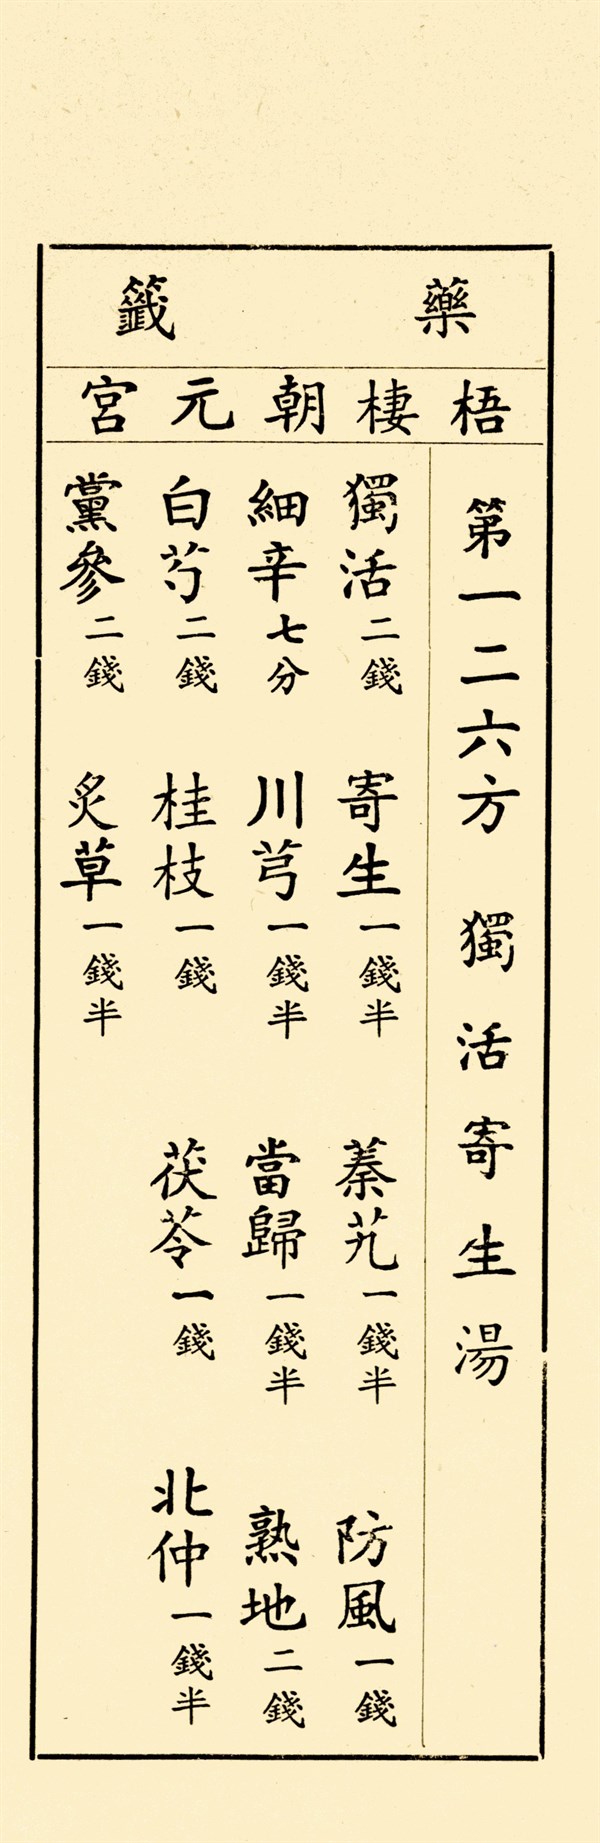 藥籤
梧棲朝元宮
第一二六方 獨活寄生湯
獨活二錢 寄生一錢半 蓁艽一錢半 防風一錢
細辛七分 川芎一錢半 當歸一錢半 熟地二錢
白芍二錢 桂枝一錢 茯苓一錢 北仲一錢半
黨參二錢 炙草一錢半